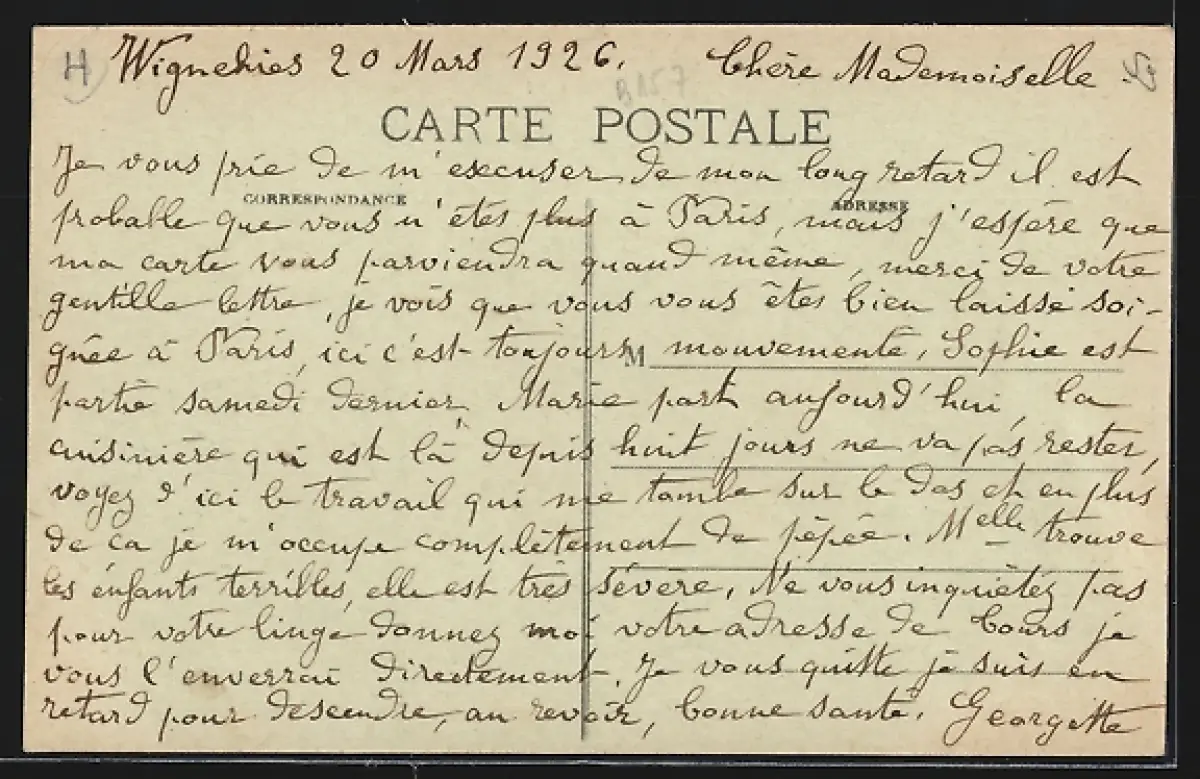 H Wignehies 20 Mars 1926. Chère Mademoiselle
B157
CARTE POSTALE
Je vous prie de m'excuser de mon long retard il est
CORRESPONDANCE
ADRESSE
probable que vous n'êtes plus à Paris, mais j'espère que
ma carte vous parviendra quand même, merci de votre
gentille lettre, je vois que vous vous êtes bien laissé soi-
gnée à Paris, ici c'est toujours mouvementé, Sophie est
M
partie samedi dernier Marie part aujourd'hui, la
cuisinière qui est là depuis huit jours ne va pas rester,
voyez d'ici le travail qui me tombe sur le dos et en plus
de ca je m'occupe complètement de pépée. Melle trouve
les enfants terribles, elle est très sévère, Ne vous inquiètez pas
pour votre linge donnez moi votre adresse de Tours je
vous l'enverrai directement. Je vous quitte je suis en
retard pour descendre, au revoir, bonne santé. Georgette